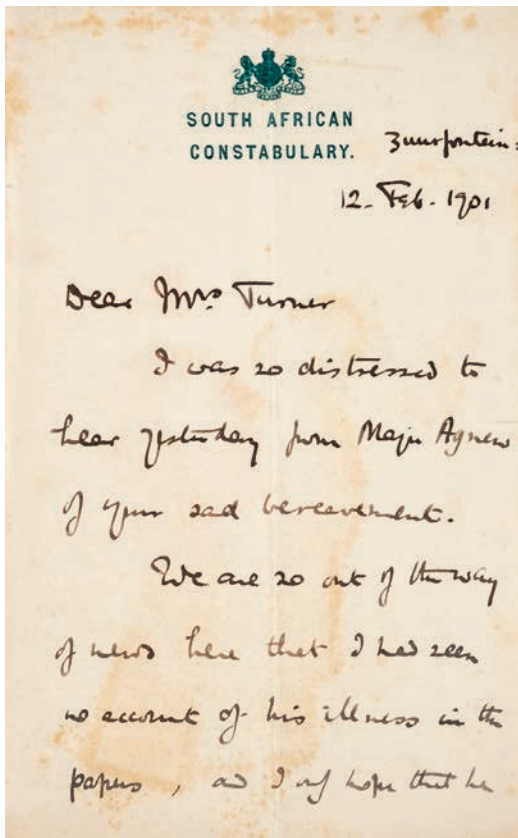 SOUTH AFRICAN
CONSTABULARY.
Zuurfontein
12. Feb. 1901
Dear Mrs Turner
I was so distressed to
hear yesterday from Major Agnew
of your sad bereavement.
We are so out of the way
of news here that I had seen
no account of his illness in the
papers, and I only hope that he